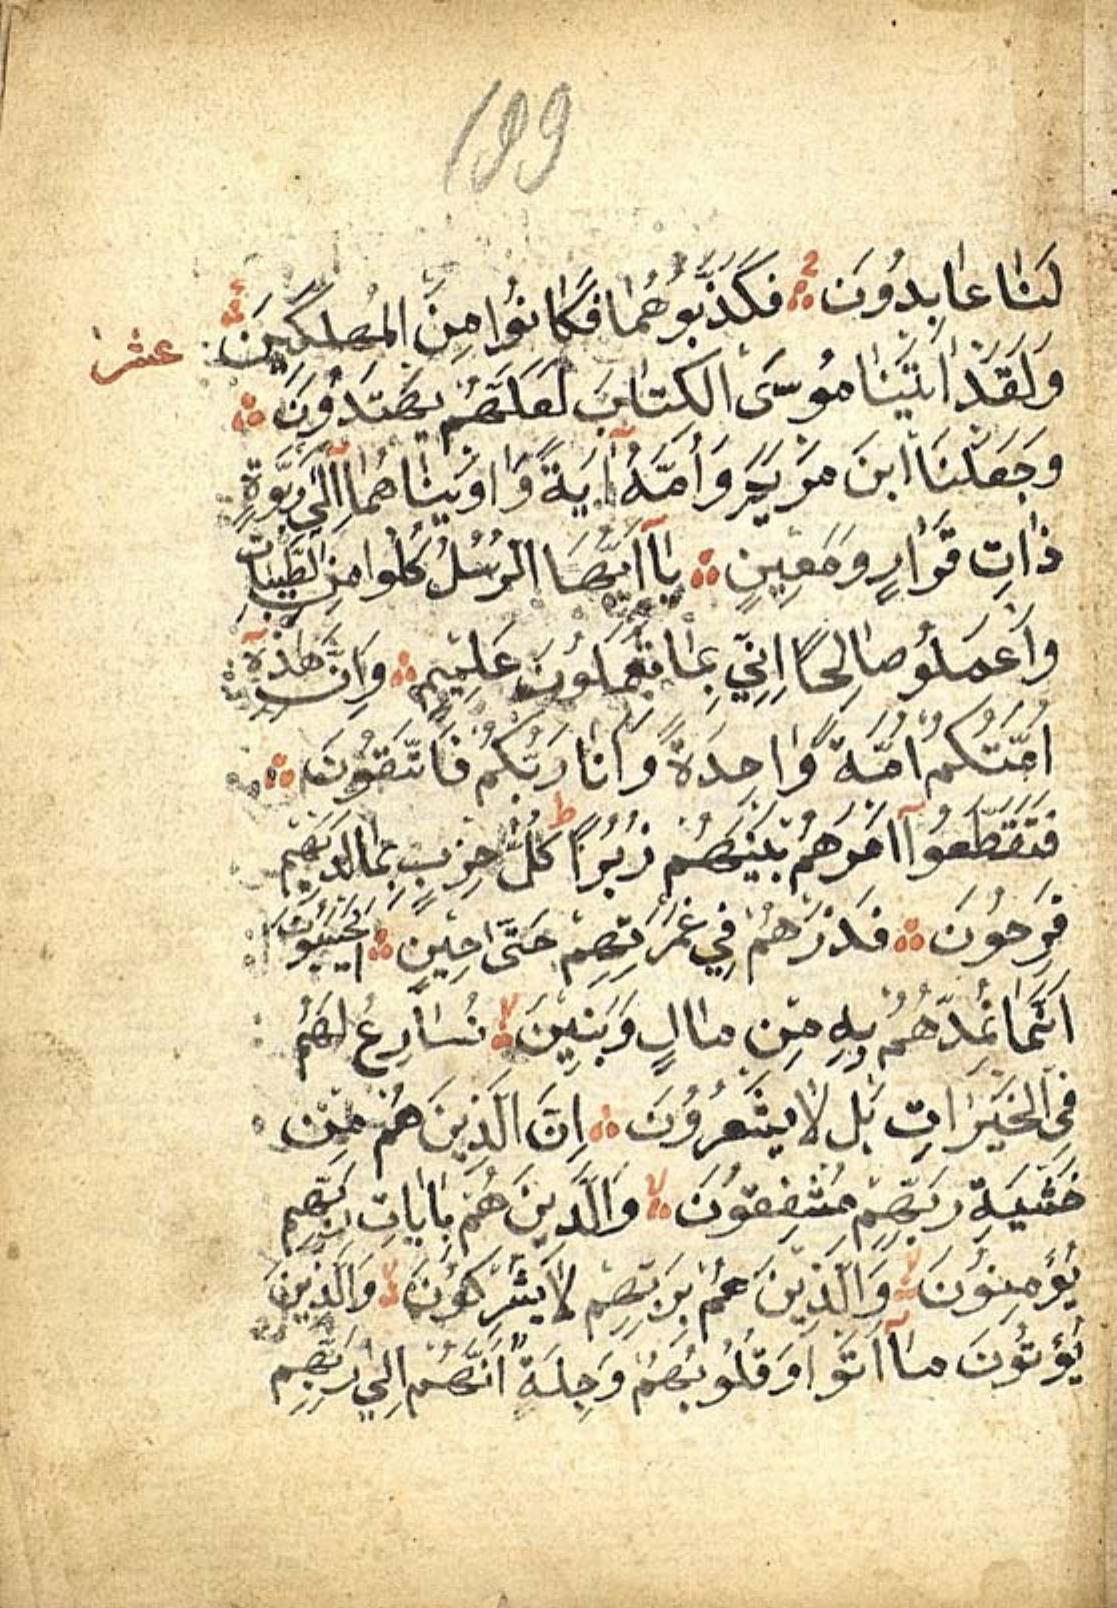 199
لَنَا عَابِدُونَ فَكَذَّبُوهُمَا فَكَانُوا مِنَ الْمُهْلَكِينَ
عشر
وَلَقَدْ اٰتَيْنَا مُوسَى الْكِتَابَ لَعَلَّهُمْ يَهْتَدُونَ
وَجَعَلْنَا ابْنَ مَرْيَمَ وَأُمَّهُ اٰيَةً وَاٰوَيْنَاهُمَا اِلَى رَبْوَةٍ
ذَاتِ قَرَارٍ وَمَعِينٍ يَا اَيُّهَا الرُّسُلُ كُلُوا مِنَ الطَّيِّبَاتِ
وَاعْمَلُو صَالِحًا اِنِّي بِمَا تَعْمَلُونَ عَلِيمٍ وَاِنَّ هٰذِهٓ
اُمَّتُكُمْ اُمَّةً وَاحِدَةً وَاَنَا رَبُّكُمْ فَاتَّقُونَ
فَتَقَطَّعُوآ اَمْرَهُمْ بَيْنَهُمْ زُبُرًا ط كُلُّ حِزْبٍ بِمَا لَدَيْهِمْ
فَرِحُونَ فَذَرْهُمْ فِي غَمْرَتِهِمْ حَتَّى حِينٍ اَيَحْسَبُونَ
اَنَّمَا نُمِدُّهُمْ بِهِ مِنْ مَالٍ وَبَنِينَ لا نُسَارِعُ لَهُمْ
فِي الْخَيْرَاتِ بَلْ لَا يَشْعُرُونَ اِنَّ الَّذِينَ هُمْ مِنْ
خَشْيَةِ رَبِّهِمْ مُشْفِقُونَ لا وَالَّذِينَ هُمْ بِاٰيَاتِ رَبِّهِمْ
يُؤْمِنُونَ لا وَالَّذِينَ هُمْ بِرَبِّهِمْ لَا يُشْرِكُونَ لا وَالَّذِينَ
يُؤْتُونَ مَآ اٰتَوْا وَقُلُوبُهُمْ وَجِلَةٌ اَنَّهُمْ اِلَى رَبِّهِمْ